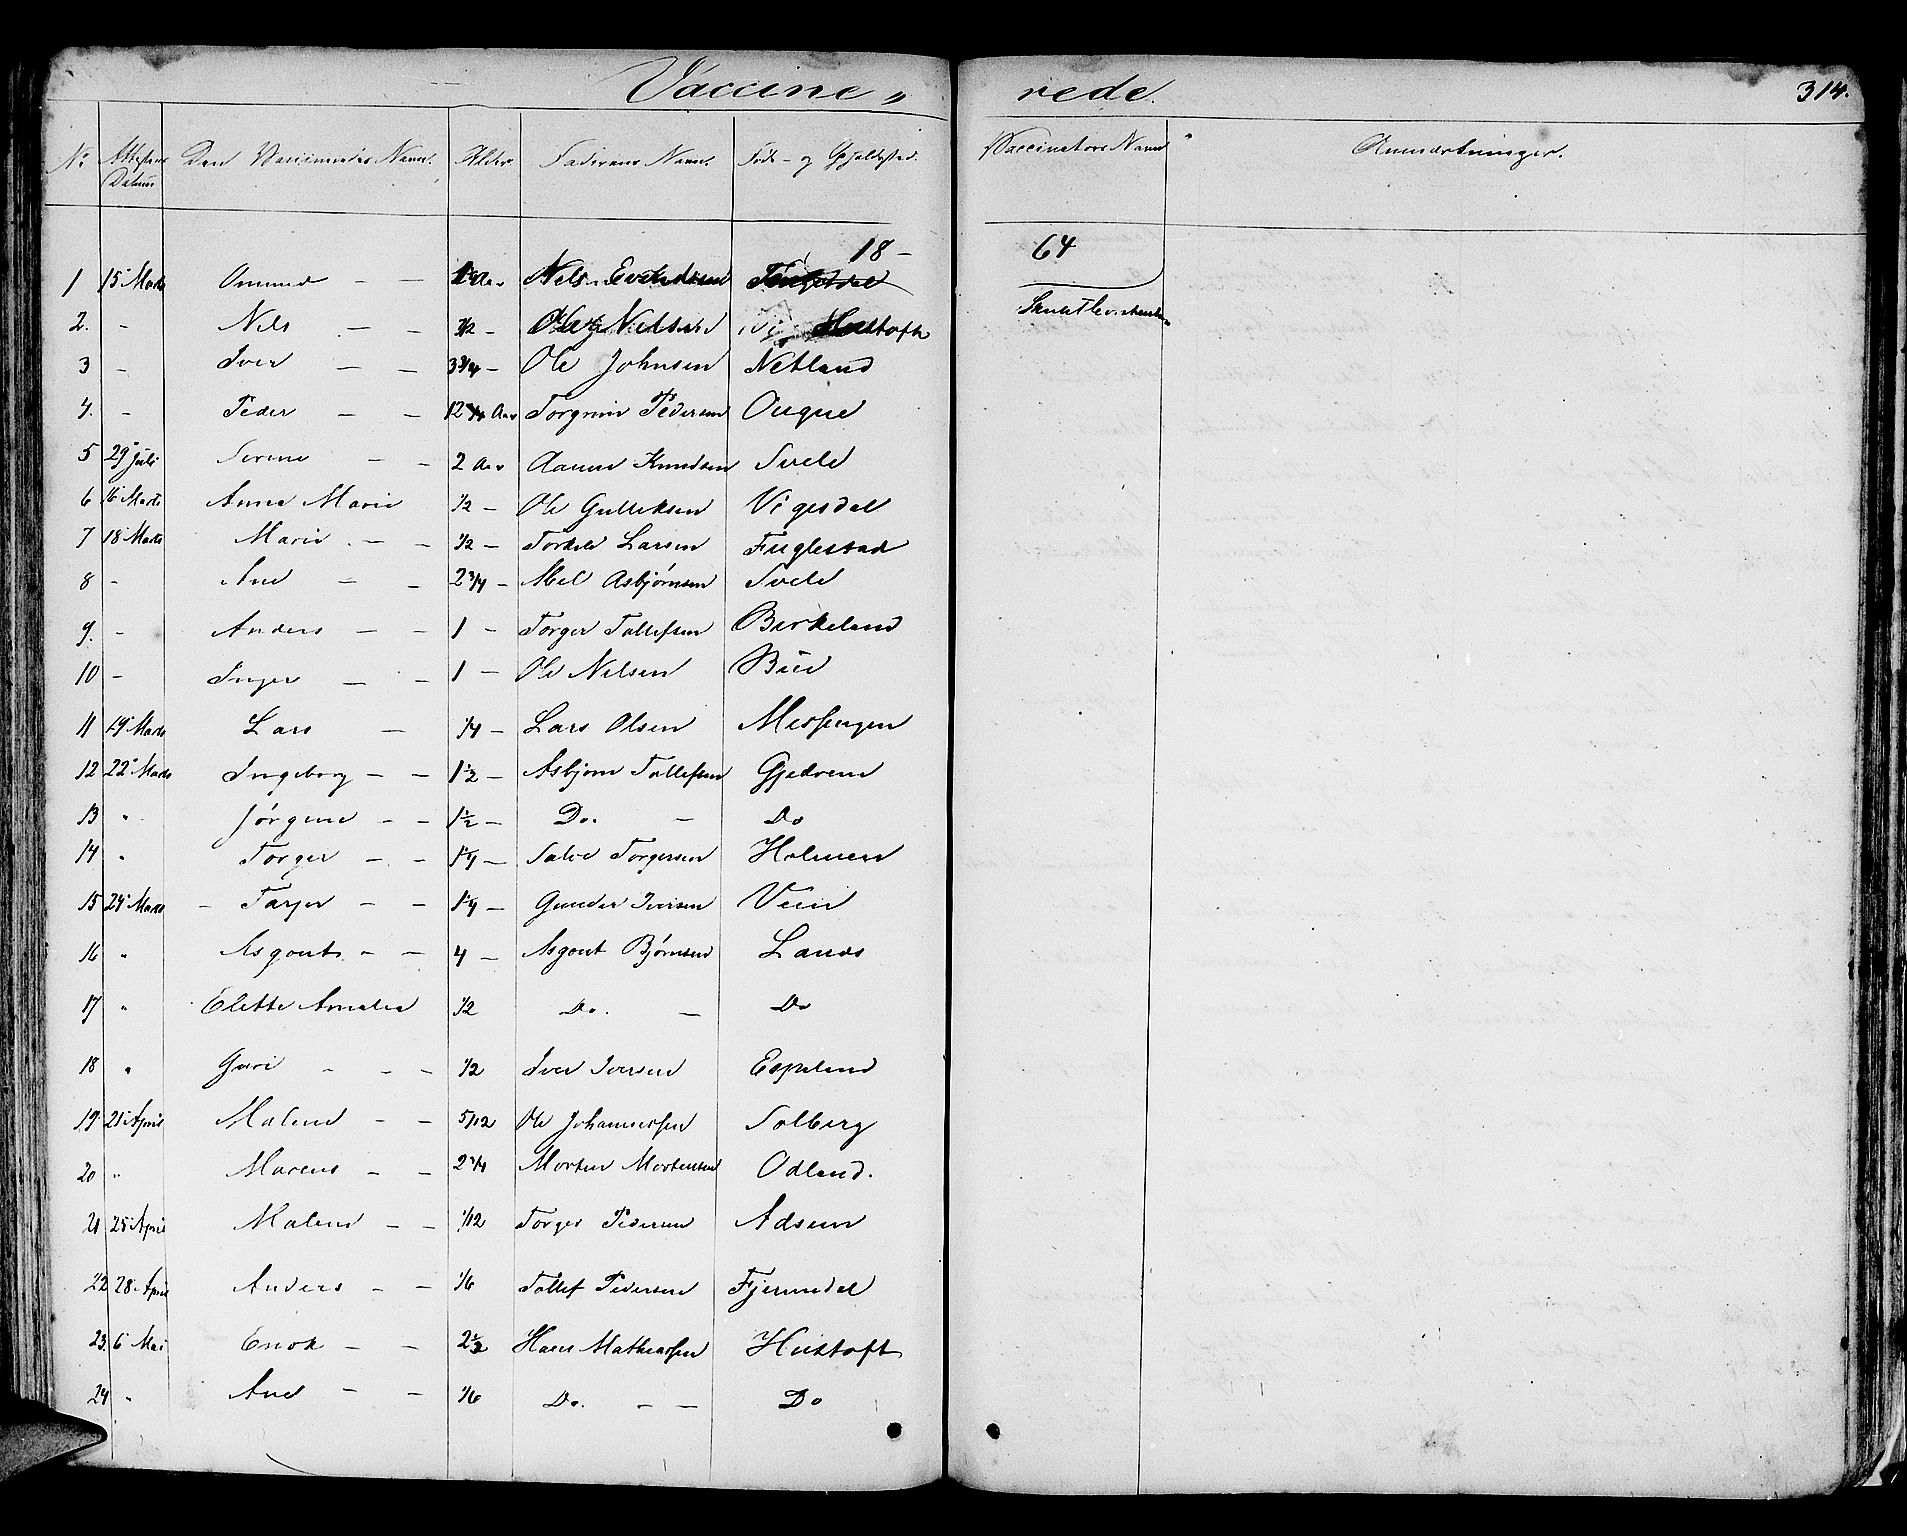 Vaccine„ rede. 314.
No Attestens Datum Den Vaccineredes Navn. Alder. Faderens Navn. Føde- og Opholdssted. Vaccinatørs Navn Anmærkninger.
18- 64
1 15 Marts Omund — — Aar Nils Evindsen
2. - Nils — — 1/2 - Ole Nilsen Hustoft
3 - Iver — — 3 3/4 - Ole Johnsen Netland
4. - Peder — — 12 Aar Torgrim Pedersen Ougne
5 29 Juli Serine — — 2 Aar Aanen Knudsen Svele
6 16 Marts Anne Marie 1/2 - Ole Gulliksen Vigesdal
7 18 Marts Marie — — 1/2 - Torkild Larsen Fuglestad
8 - Ane — — 2 3/4 - Abel Asbjørnsen Svele
9. - Anders — — 1 - Torger Tollefsen Birkeland
10 - Inger — — 1 - Ole Nilsen Bue
11 19 Marts Lars — 1/4 - Lars Olsen
12 22 Marts Ingeborg — — 1 1/2 - Asbjørn Tollefsen Gjedrem
13 " Jørgine — — 1 1/2 - Do. — Do
14 " Torger — — 1 1/4 - Salve Torgersen Holmen
15 24 Marts - Tarjer — — 1 1/4 - Gunder Iversen Veen
16 " Asgout — — 4 - Asgout Bjørnsen Lande
17 " Elette Amalia 1/2 Do. — Do
18 " Guri — — 1/2 Iver Iversen Espeland
19 21 April Malene — — 5/12 Ole Johannessen Solberg
20 " Marens — — 2 1/4 Morten Mortensen Odland.
21 25 April Malene — — 1/12 Torger Pedersen Adsen
22 28 April Anders — — 1/6 Tollef Pedersen Fjermedal
23. 6 Mai Enok — — 2 1/2 Hans Mathiassen Hustoft
24 " Ane — — 1/6 Do. — — Do